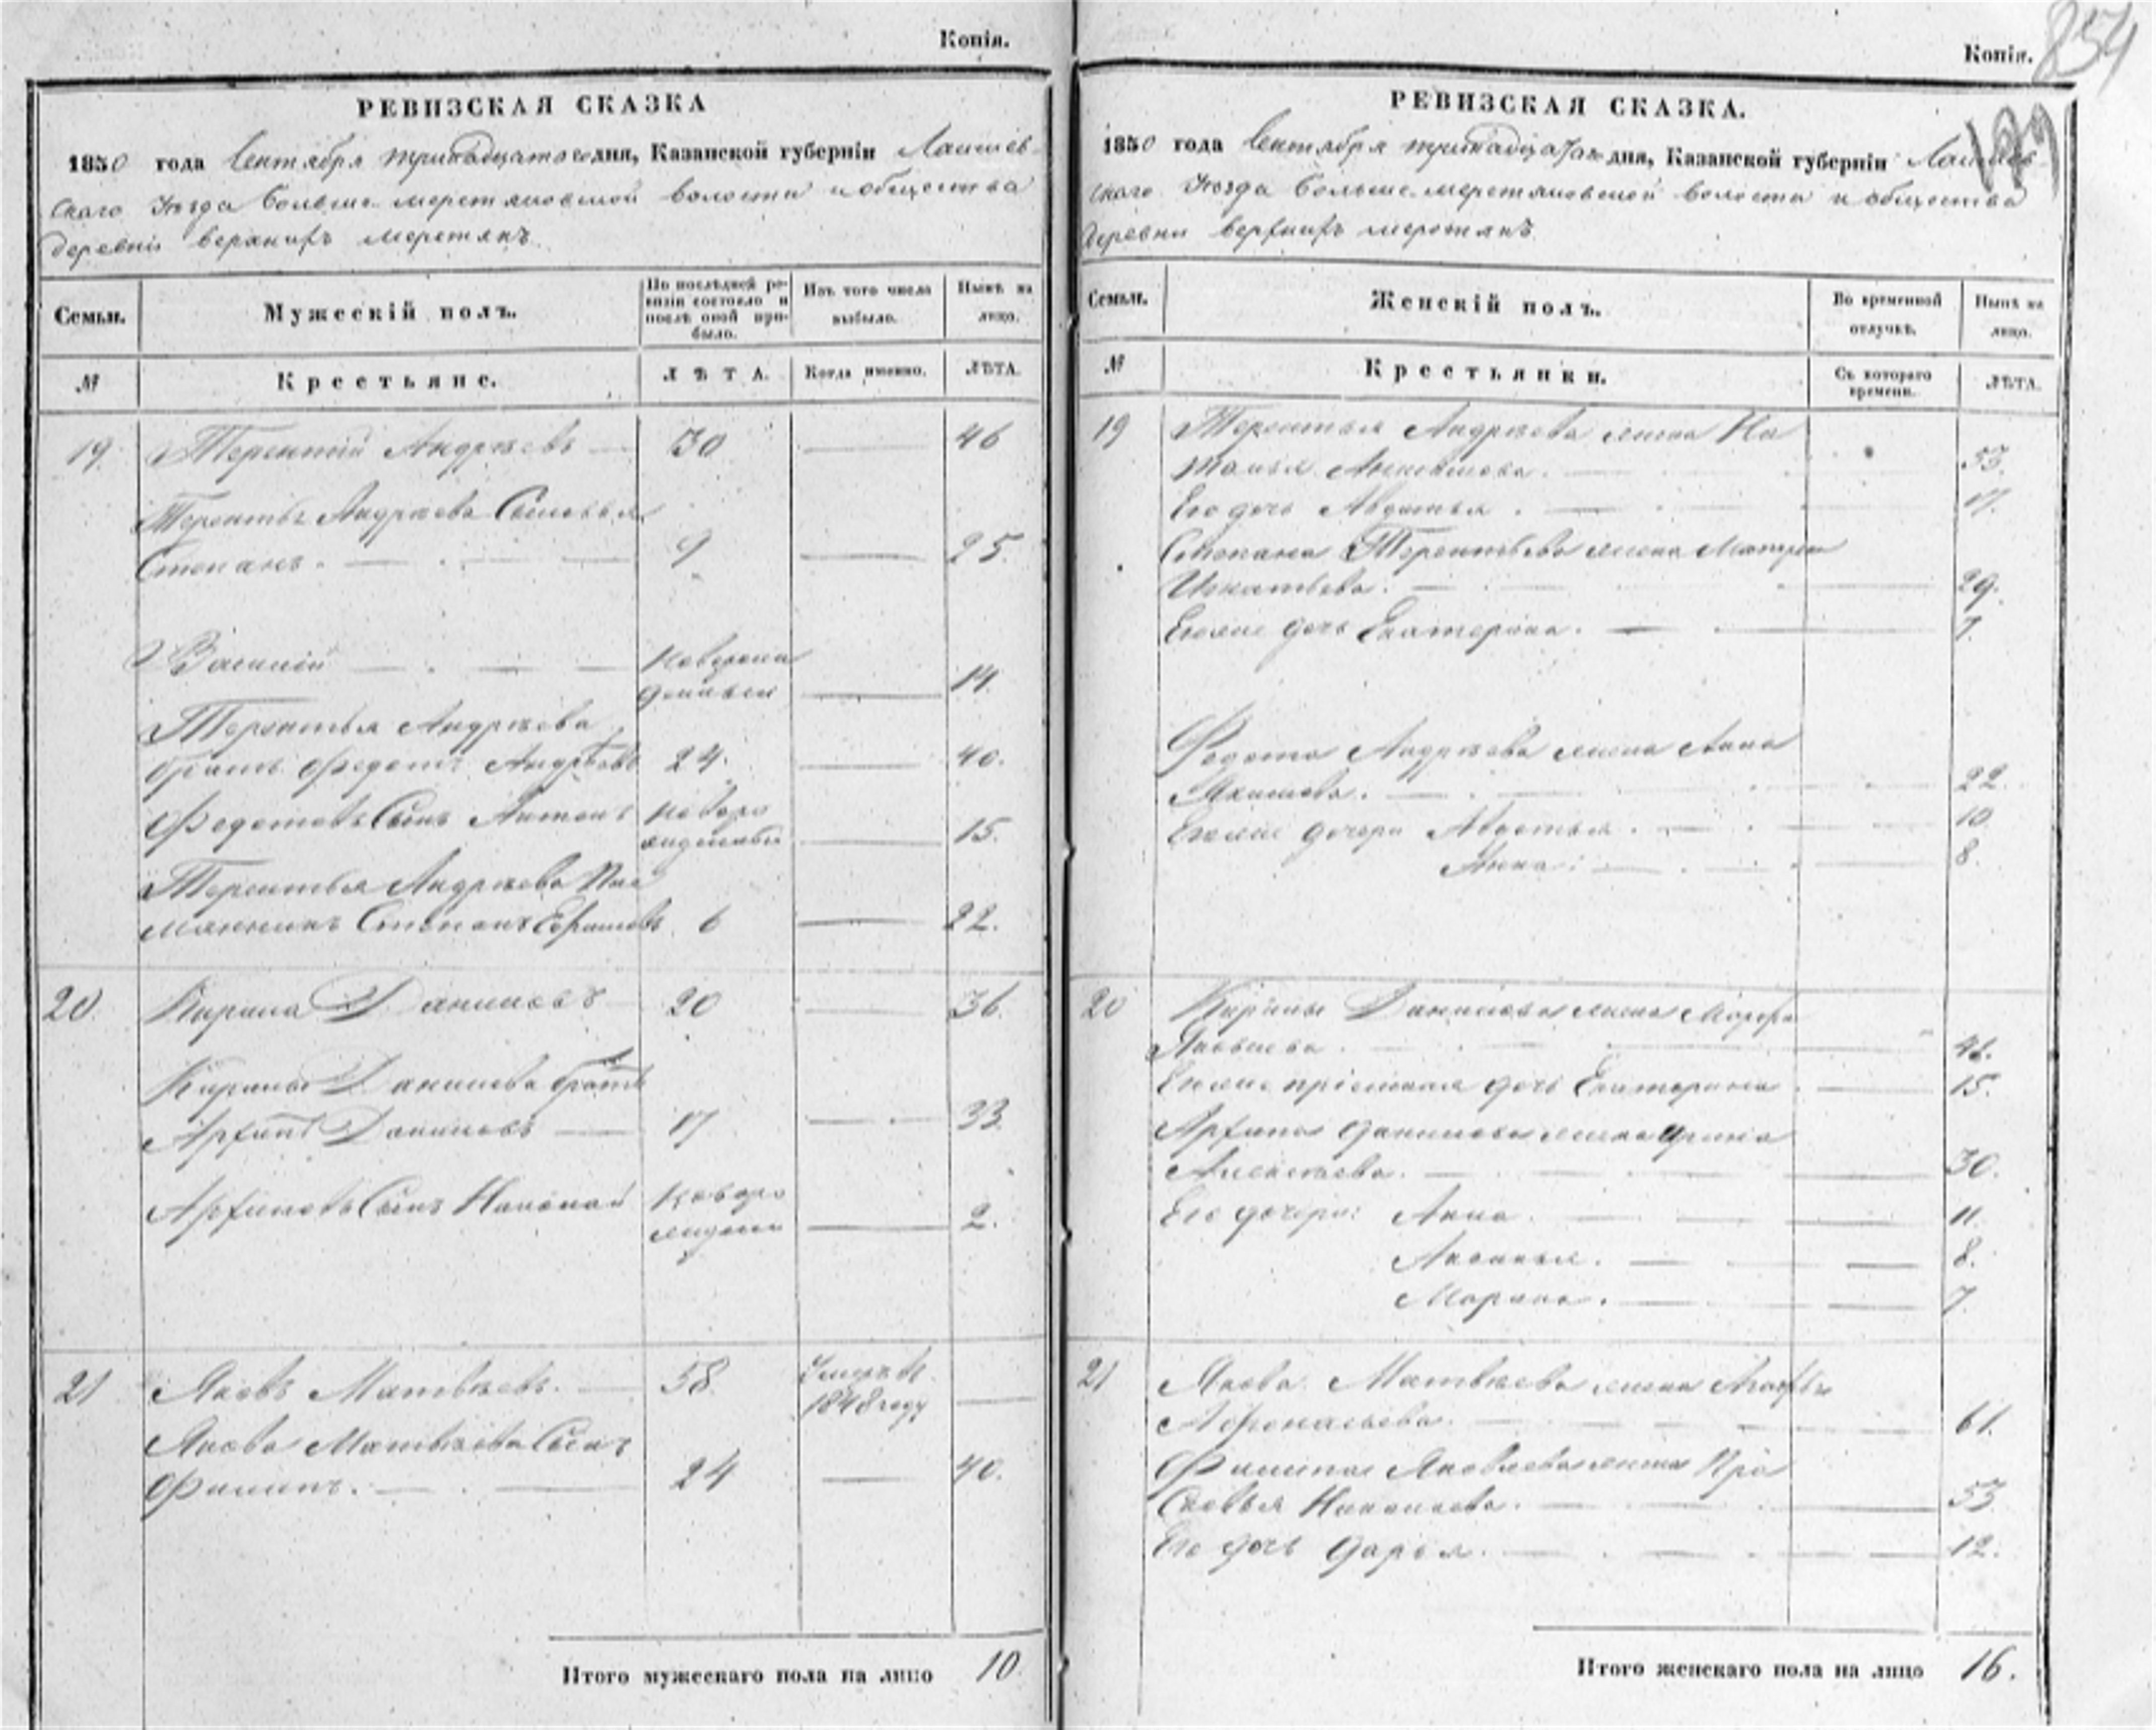 Копія.
РЕВИЗСКАЯ СКАЗКА
1850 года Сентября тринадцатого дня, Казанской губерніи Лаишев-
скаго Уѣзда Больше-меретяковской волости и общества
деревни верхнихъ меретякъ
Семьи. Мужескій полъ. По послѣдней ре-визіи состояло и послѣ оной при-было. Изъ того числа выбыло. Нынѣ на лицо.
№ Крестьяне. ЛѢТА. Когда именно. ЛѢТА.
19. Терентій Андрѣевъ 30 46
Терентья Андрѣева Сыновья
Степанъ. 9 25.
Василій новорож
денный 14.
Терентья Андрѣева
братъ Федотъ Андрѣевъ 24. 40.
Федотовъ Сынъ Антонъ новоро
жденный 15.
Терентья Андрѣева Пле
мянникъ Степанъ Ефимовъ 6 22.
20. Кирила Даниловъ 20 36.
Кирилы Данилова братъ
Архипъ Даниловъ 17 33.
Архиповъ Сынъ Николай новоро
жденн 2.
21 Яковъ Матвѣевъ. 58. Умеръ въ
1848 году
Якова Матвѣева Сынъ
Филипъ. 24 40.
Итого мужескаго пола на лицо 10
Копія.
854
РЕВИЗСКАЯ СКАЗКА.
1850 года Сентября тринадцатого дня, Казанской губерніи Лаишев-
скаго Уѣзда Больше-меретяковской волости и общества
деревни верхнихъ меретякъ
Семьи. Женскій полъ. Во временной отлучкѣ. Нынѣ на лицо.
№ Крестьянки. Съ котораго времени. ЛѢТА.
19 Терентья Андрѣева жена На
талья 53.
Его дочь Авдотья. 17.
Степана Терентьева жена Матрена
Игнатьева. 29.
Ево же дочь Екатерина. 7.
Федота Андрѣева жена Анна
Якимова. 22.
Ево же дочери Авдотья. 10
Анна: 8.
20 Кирилы Данилова жена Марфа
Яковлева.
Ево же пріемная дочь Екатерина. 15.
Архипа Данилова жена Ирина
Алексѣева. 30.
Его дочери: Анна. 11.
Аксинья. 8.
Марина. 7.
21 Якова Матвѣева жена
Афонасьева. 61.
Филипа Яковлева жена Пра
сковья Николаева. 53
Его дочь Дарья. 12.
Итого женскаго пола на лицо 16.